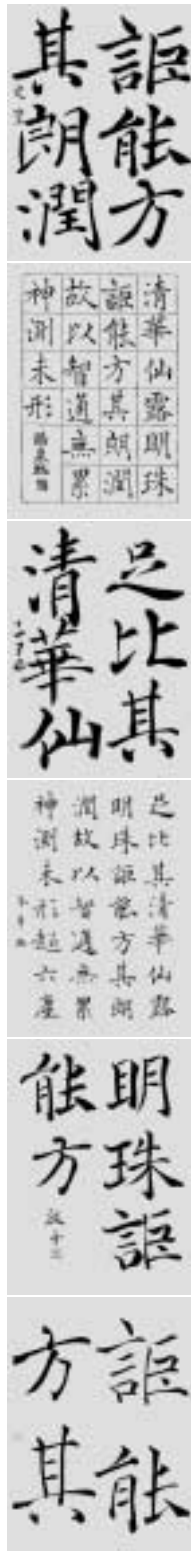 詎能方
其朗潤
清華仙露明珠
詎能方其朗潤
故以智通無累
神測未形
足比其
清華仙
足比其清華仙露
明珠詎能方其朗
潤故以智通無累
神測未形超六塵
明珠詎
能方
詎能
方其